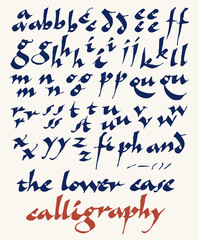 a abbbcddeeff
gghhiijkll
mnoppququ
mn
rrssttuvw
stuvw
xxyyzzfiphand
the lower case
calligraphy